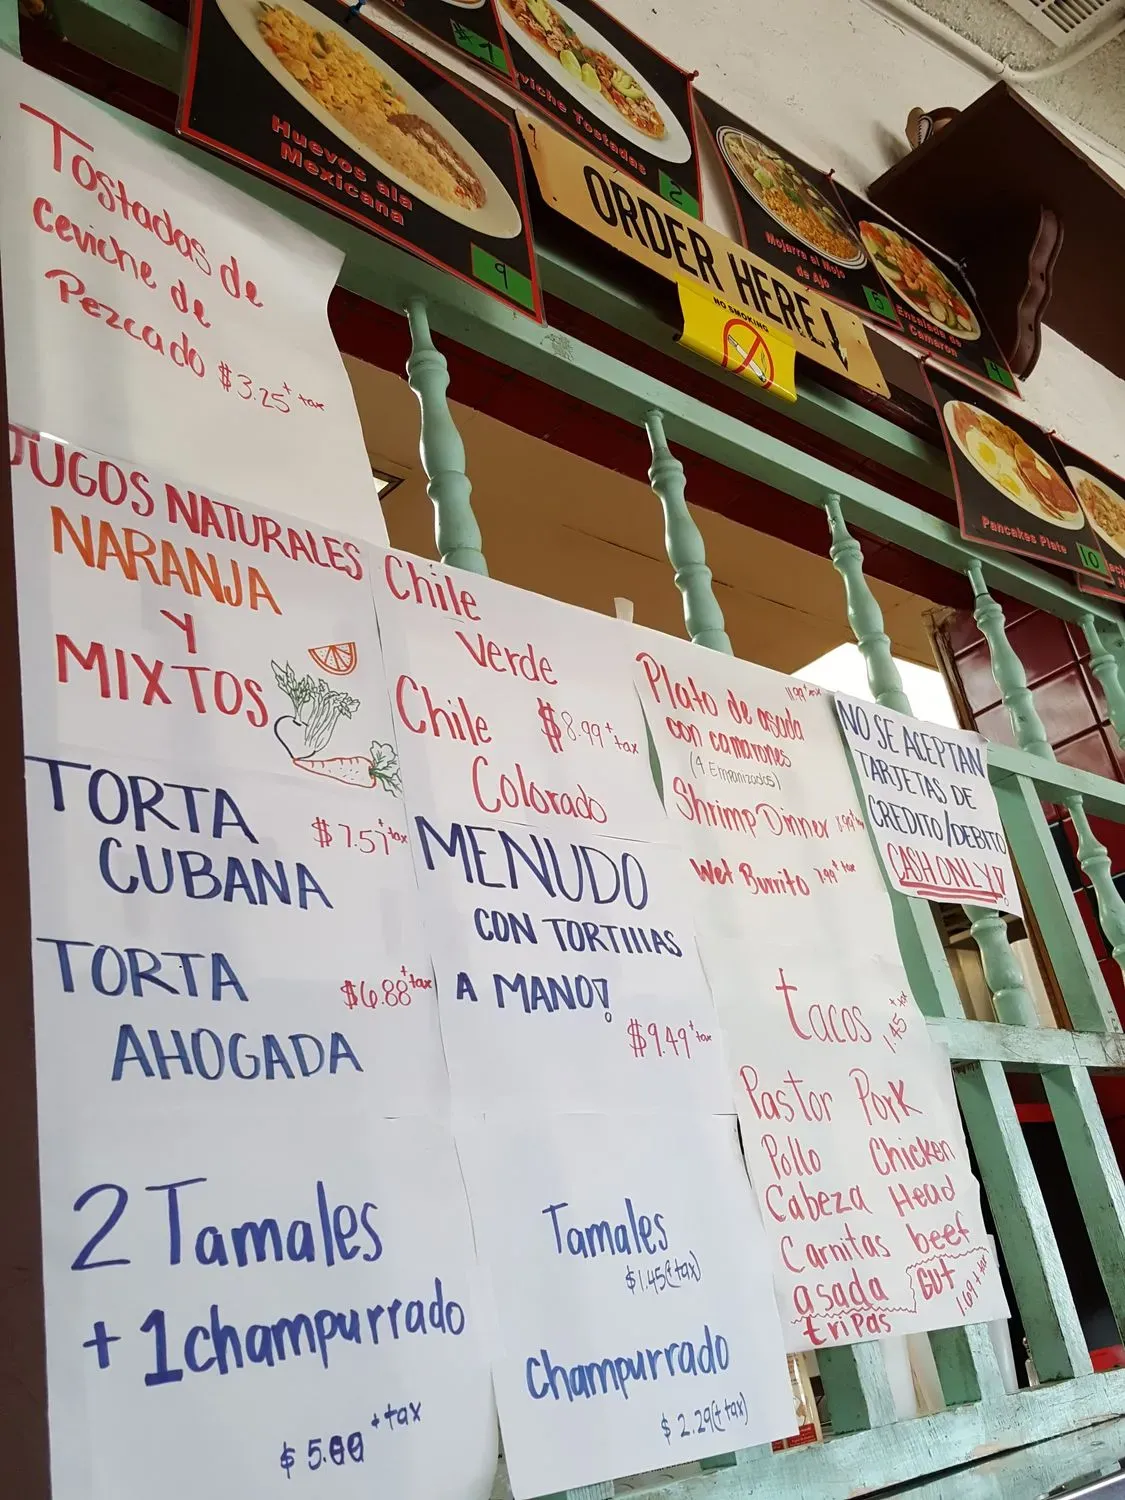 $ 1
Huevos ala
Mexicana
9
viche Tostadas
2
ORDER HERE
NO SMOKING
Mojarra al Mojo
de Ajo
5
Ensalada de
Camaron
4
Pancakes Plate
10
Tostadas de
Ceviche de
Pezcado $3.25 + tax
JUGOS NATURALES
NARANJA
Y
MIXTOS
TORTA
CUBANA
$7.57 + tax
TORTA
AHOGADA
$6.88 + tax
2 Tamales
+ 1 champurrado
$5.00 + tax
Chile
Verde
Chile
Colorado
$8.99 + tax
MENUDO
CON TORTIllAS
A MANO!
$9.49 + tax
Tamales
$1.45 (+ tax)
champurrado
$2.29 (+ tax)
Plato de asada
con camarones
11.99 + tax
(4 Empanizados)
Shrimp Dinner
Wet Burrito 7.99 + tax
tacos 1.45 + tax
Pastor Pork
Pollo Chicken
Cabeza Head
Carnitas beef
asada
tripas
Gut 1.69 + tax
NO SE ACEPTAN
TARJETAS DE
CREDITO/DEBITO
CASH ONLY!